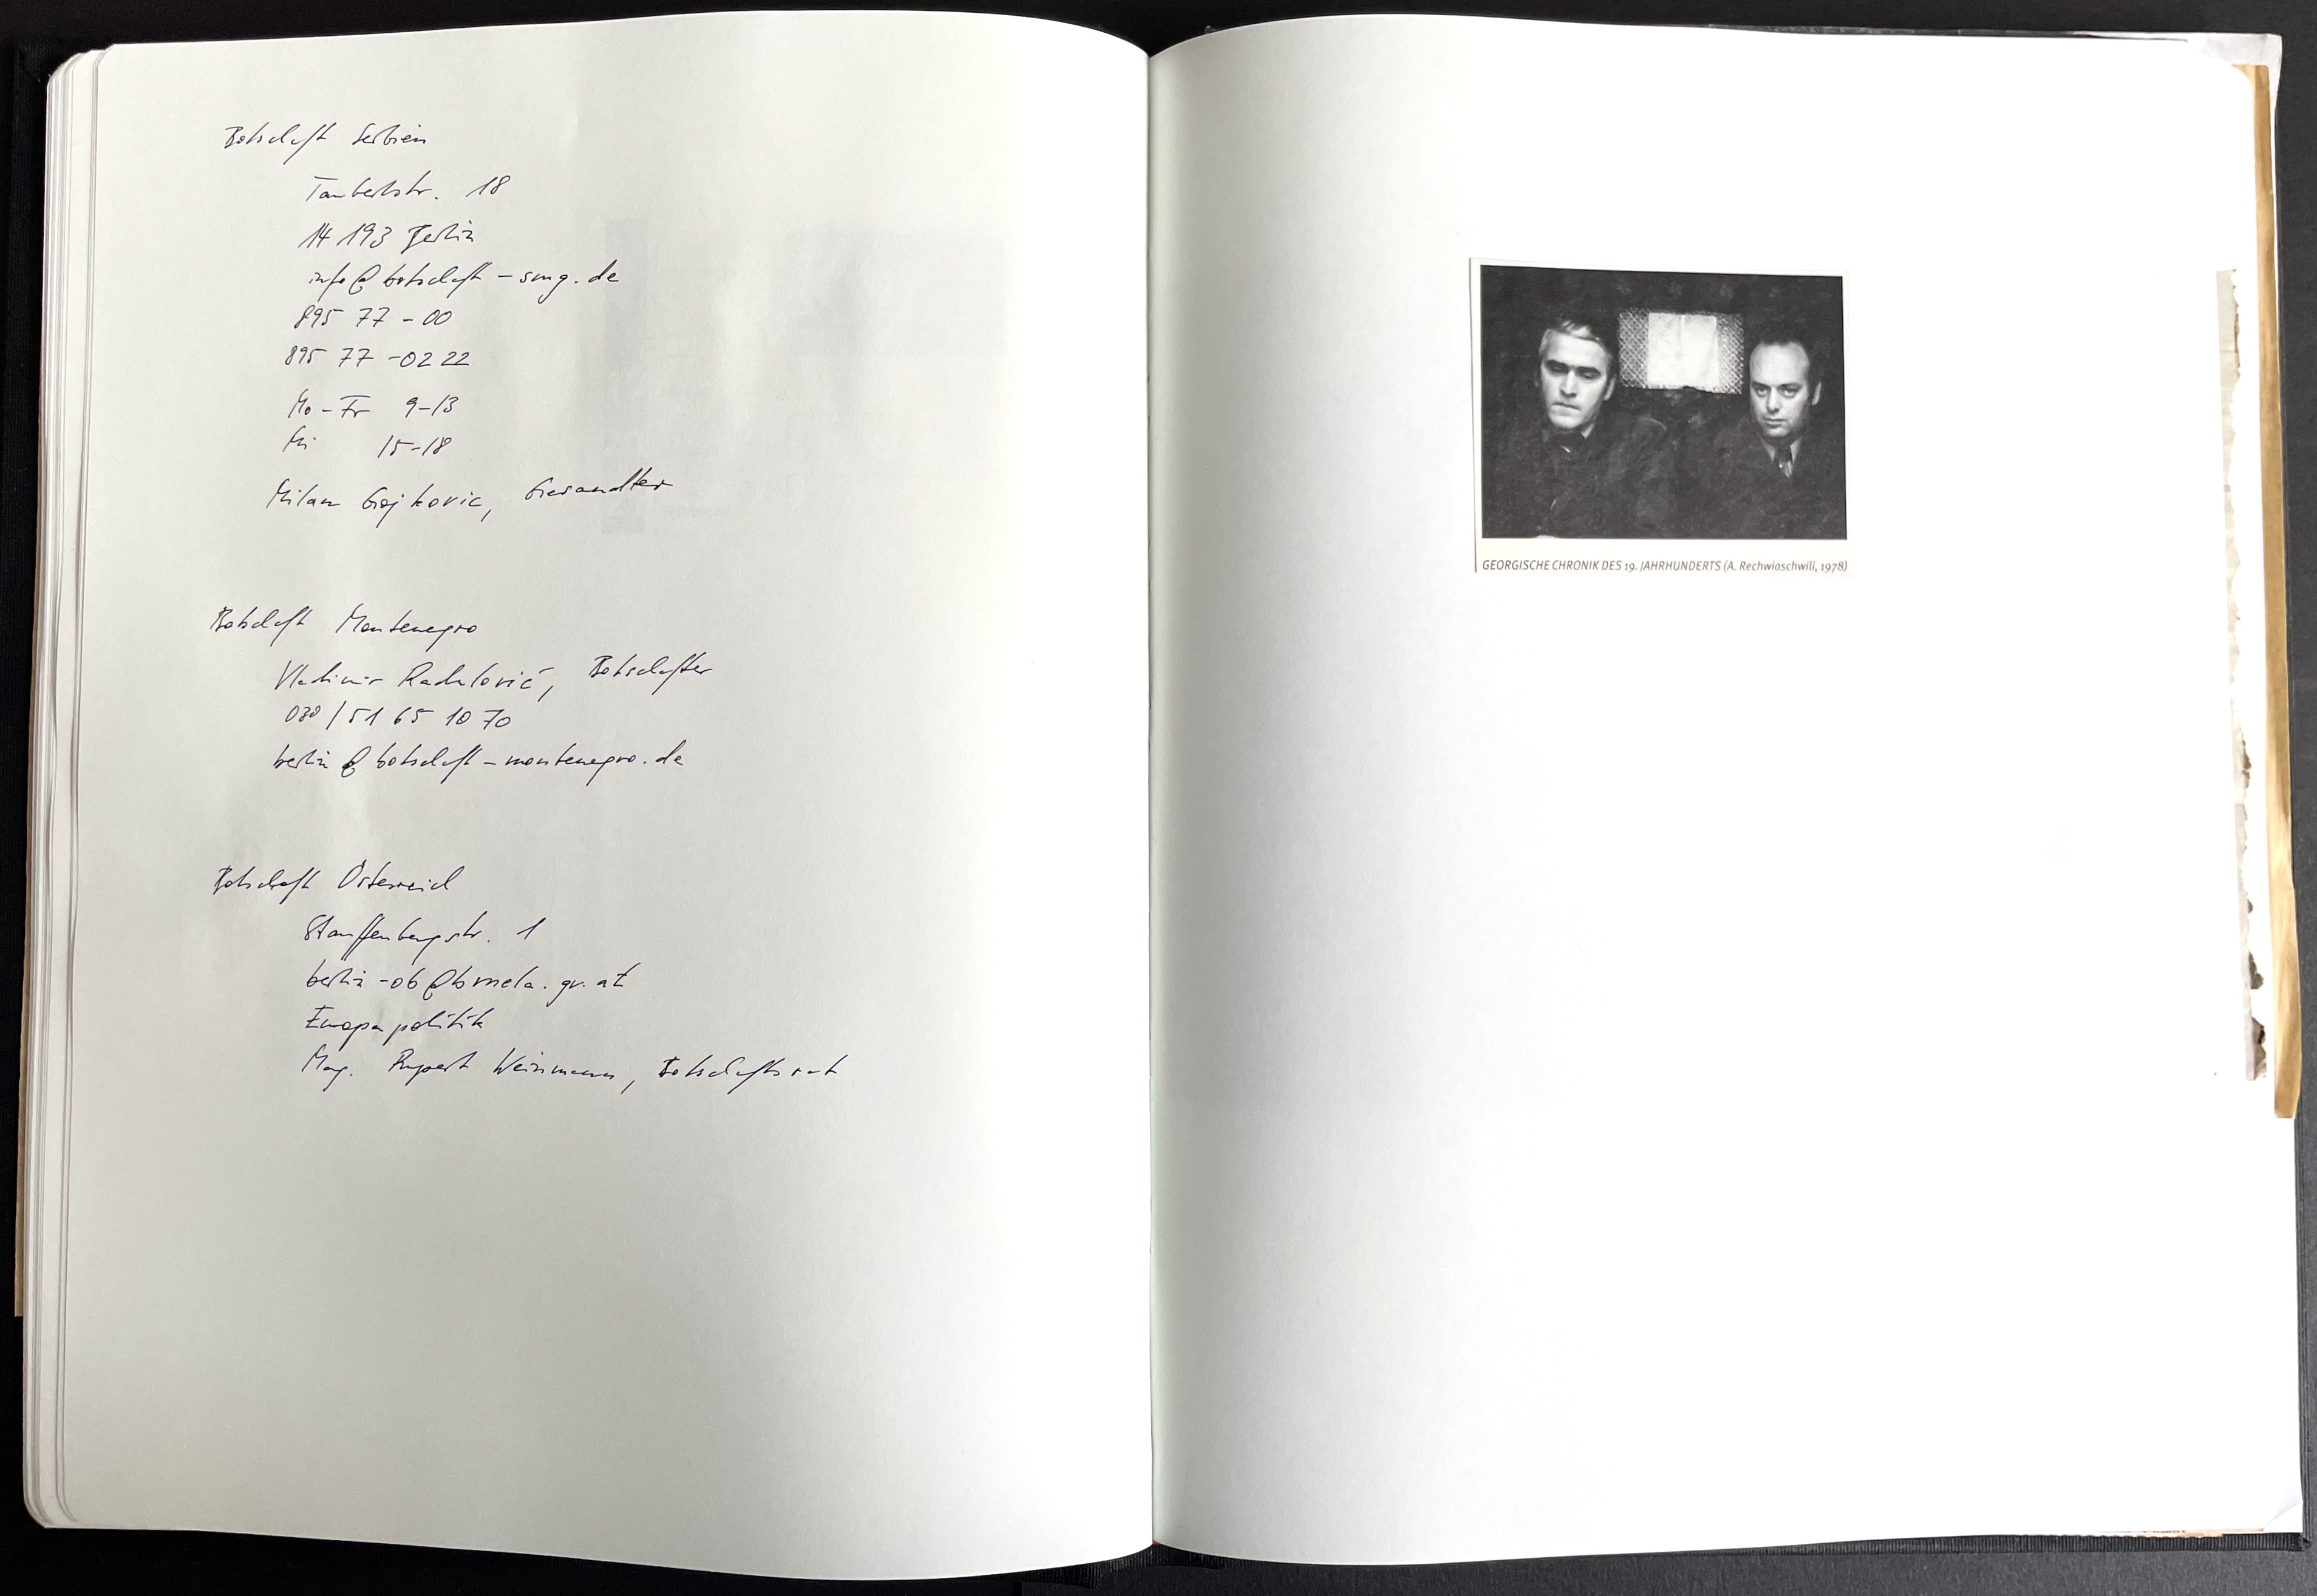 Botschaft Serbien
Taubertstr. 18
14 193 Berlin
info@botschaft-smg.de
895 77 - 00
895 77 - 02 22
Mo - Fr 9-13
Mi 15-18
Milan Gojkovic, Gesandter
Botschaft Montenegro
Vladimir Radulović, Botschafter
030 / 51 65 10 70
berlin@botschaft-montenegro.de
Botschaft Österreich
Stauffenbergstr. 1
berlin-ob@bmeia.gv.at
Europapolitik
Mag. Rupert Weinmann, Botschaftsrat
GEORGISCHE CHRONIK DES 19. JAHRHUNDERTS (A. Rechwiaschwili, 1978)